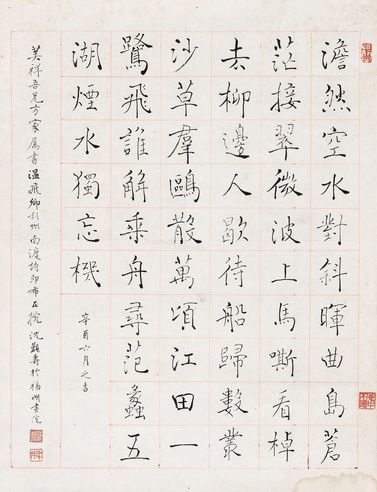 澹然空水對斜暉曲島蒼
茫接翠微波上馬嘶看棹
去柳邊人歇待船歸數叢
沙草羣鷗散萬頃江田一
鷺飛誰解乘舟尋范蠡五
湖煙水獨忘機
辛酉六月之吉
美祥吾兄方家属書溫飛卿利州南渡詩即希正腕沈覲壽於福州畫院